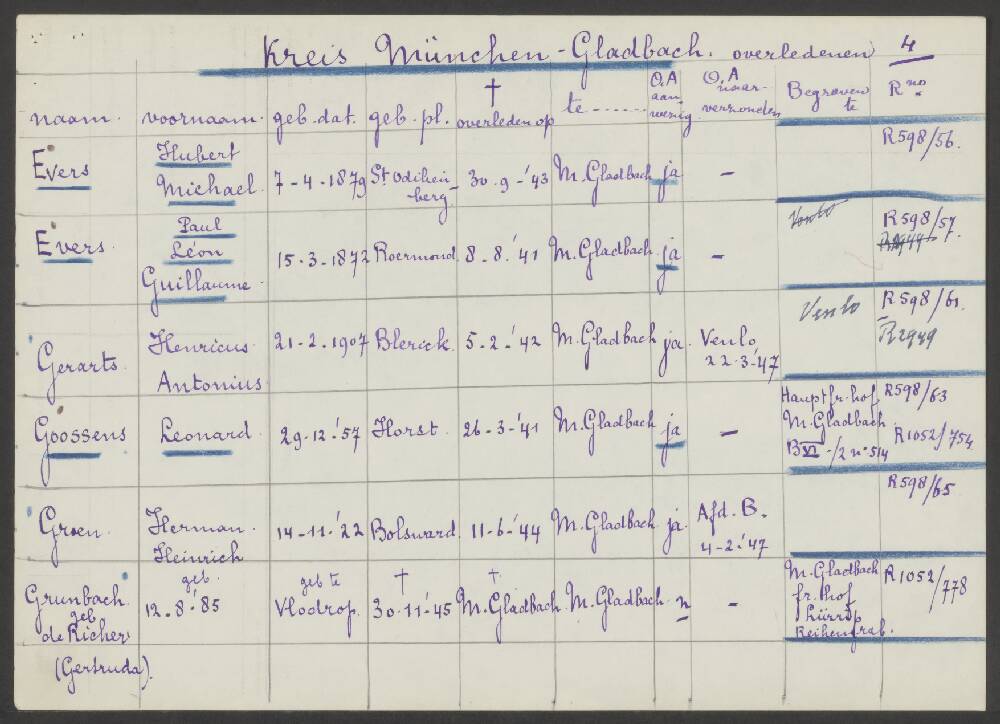 Kreis München-Gladbach. overledenen 4
naam. voornaam. geb. dat. geb. pl. † overleden op te ...... O.A aan-wezig O.A naar verzonden Begraven te R no.
Evers Hubert Michael 7-4-1879 St Odiliën-berg 30-9-'43 M. Gladbach ja - R598/56.
Evers. Paul Léon Guillaume 15-3-1872 Roermond 8-8-'41 M. Gladbach ja - Venlo R598/57.
Gerarts. Henricus Antonius 21-2-1907 Blerick. 5-2-'42 M. Gladbach ja. Venlo 22-3-'47 Venlo R598/61. R2949
Goossens Leonard. 29-12-'57 Horst. 26-3-'41 M. Gladbach ja - Hauptfr. hof M. Gladbach BVI-/2 n° 514 R598/63 R1052/754
Groen. Herman. Heinrich 14-11-'22 Bolsward. 11-6-'44 M. Gladbach ja. Afd. B. 4-2-'47 R598/65
Grunbach. geb. de Richer (Gertruda). geb. 12-8-'85 geb te Vlodrop. † 30-11-'45 † M. Gladbach M. Gladbach. n - M. Gladbach fr. hof Reihengrab. R1052/778